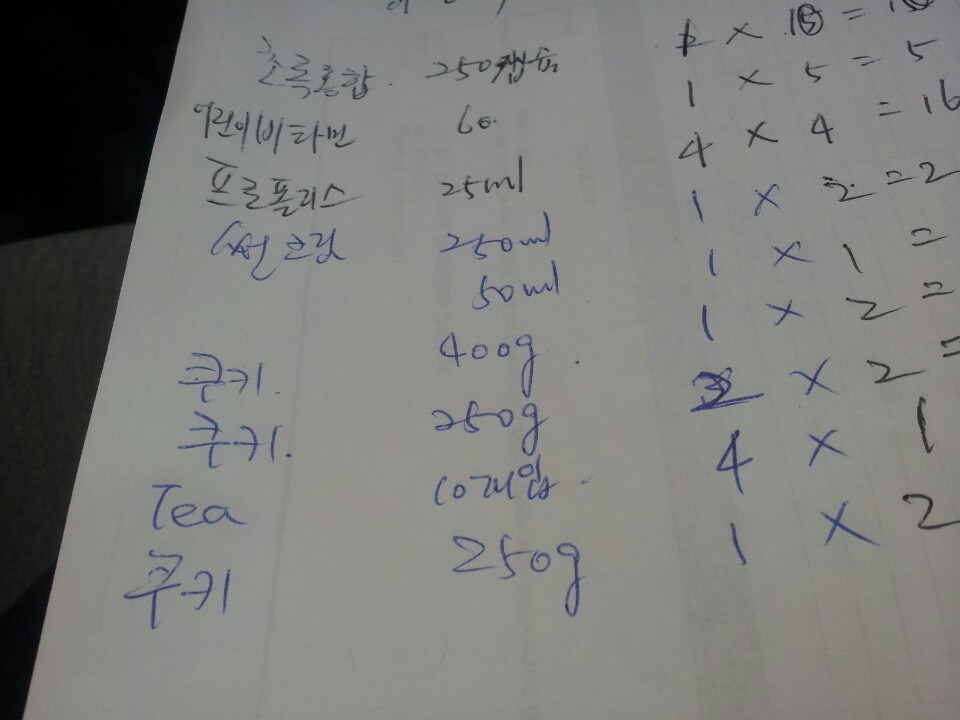 초록홍합. 250캡슐 1 ×
어린이비타민 60. 1 × 5 = 5
프로폴리스 25ml 4 × 4 = 16
썬크림 250ml 1 × 2 = 2
50ml 1 × 1 =
쿠키. 400g. 1 × 2 =
쿠키. 250g × 2 =
Tea 10개입. 4 × 1
쿠키 250g 1 × 2